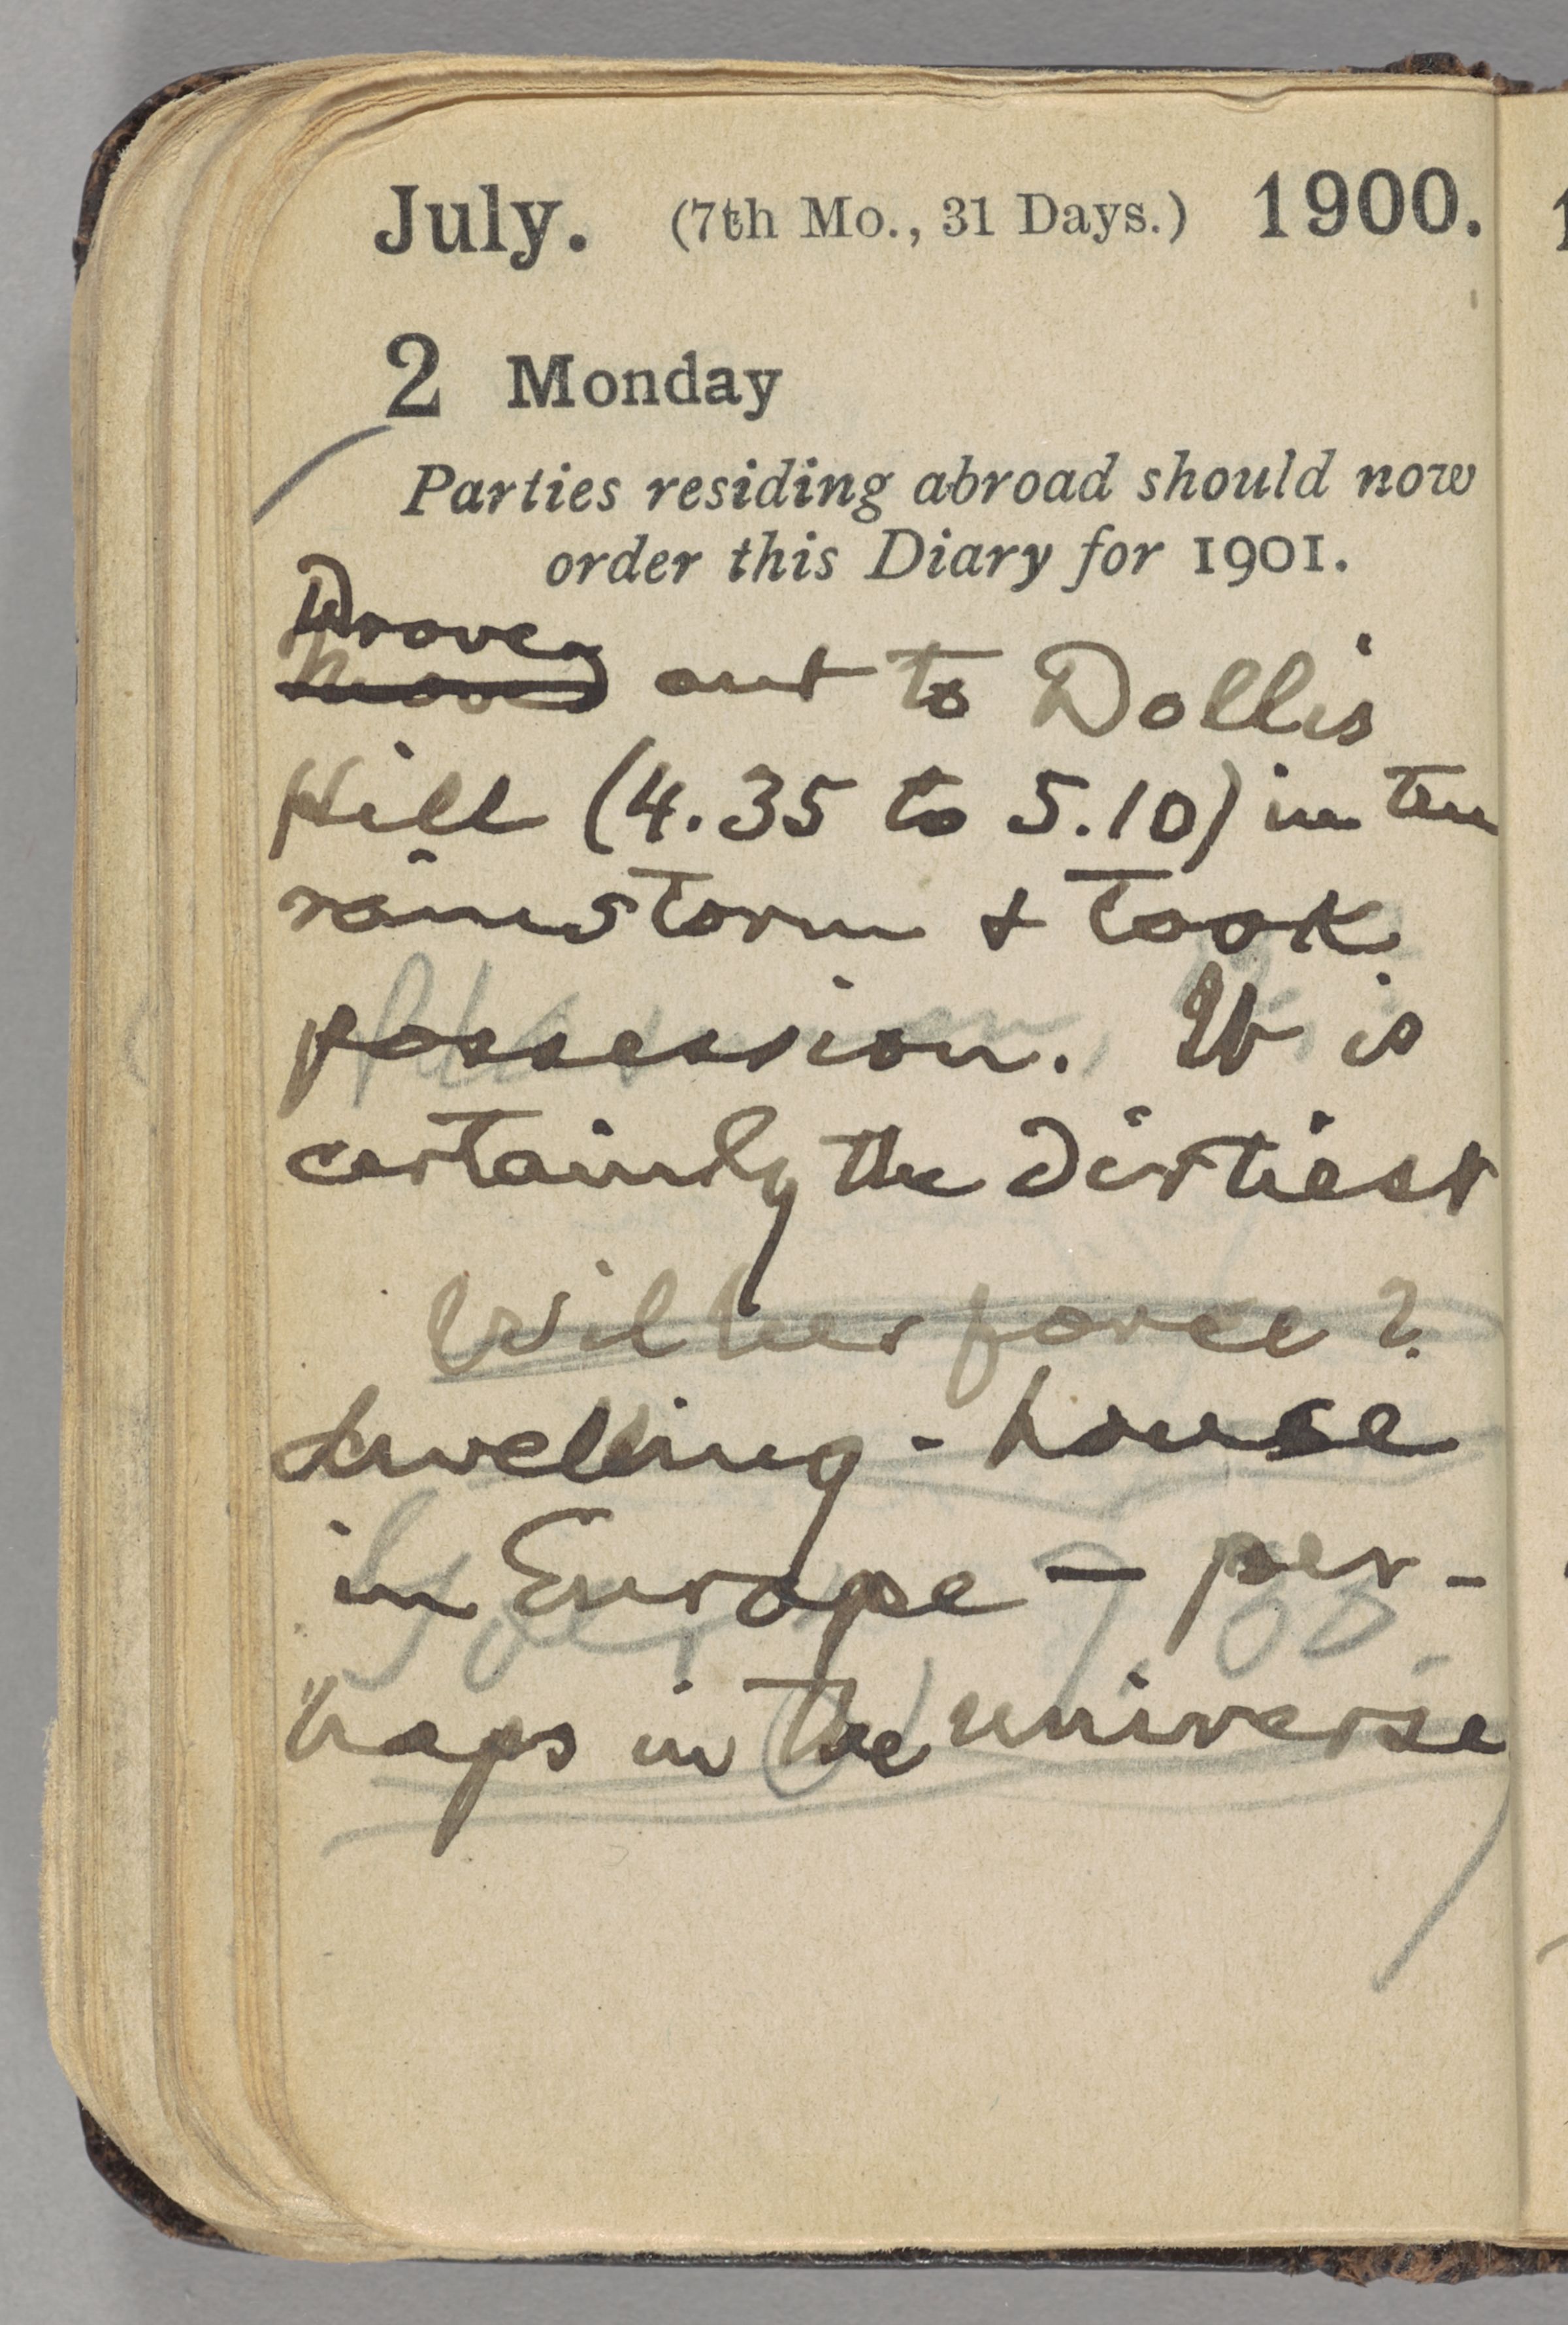 July. (7th Mo., 31 Days.) 1900.
2 Monday
Parties residing abroad should now
order this Diary for 1901.
Drove
Moved out to Dollis
Hill (4.35 to 5.10) in the
rainstorm & took
possession. It is
certainly the dirtiest
Wilberforce?
dwelling-house
in Europe — per-
haps in the universe